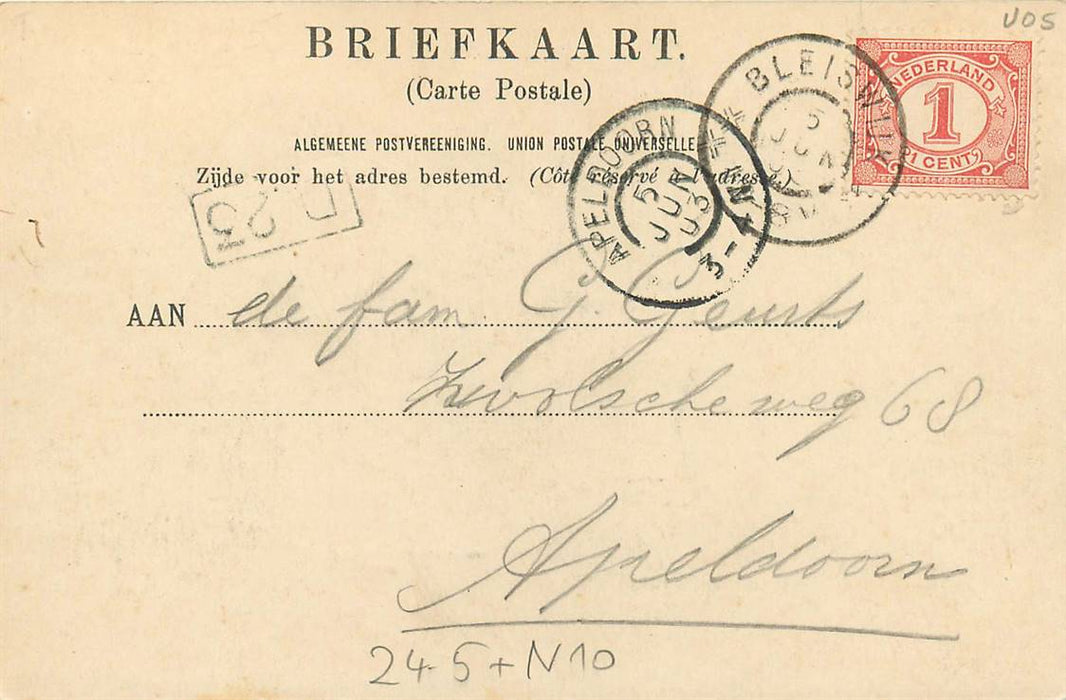 V05
BRIEFKAART.
(Carte Postale)
ALGEMEENE POSTVEREENIGING. UNION POSTALE UNIVERSELLE
Zijde voor het adres bestemd. (Côté réservé à l'adresse.)
NEDERLAND
1
1 CENT
BLEISWIJK
5
JUN
8V
APELDOORN
5
JUN
03
3-4N
23
AAN de fam. G. Geurts
Zwolsche weg 68
Apeldoorn
24-5+N10